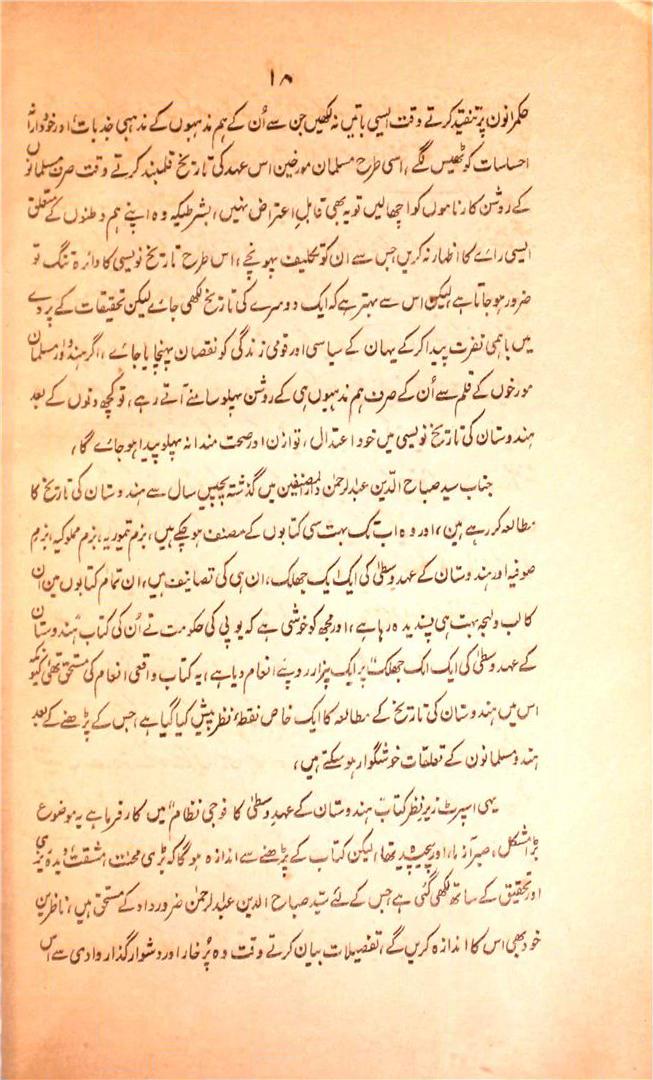 ۱۸
حکمرانوں پر تنقید کرتے وقت ایسی باتیں نہ لکھیں جن سے اُن کے ہم مذہبوں کے مذہبی جذبات اور خوددارانہ
احساسات کو ٹھیس لگے، اسی طرح مسلمان مورخین اس عہد کی تاریخ قلمبند کرتے وقت صرف مسلمانوں
کے روشن کارناموں کو اچھالیں تو یہ بھی قابلِ اعتراض نہیں، بشرطیکہ وہ اپنے ہم وطنوں کے متعلق
ایسی رائے کا اظہار نہ کریں جس سے ان کو تکلیف پہونچے، اس طرح تاریخ نویسی کا دائرہ تنگ تو
ضرور ہو جاتا ہے لیکن اس سے بہتر ہے کہ ایک دوسرے کی تاریخ لکھی جائے لیکن تحقیقات کے پردے
میں باہمی نفرت پیدا کر کے یہان کے سیاسی اور قومی زندگی کو نقصان پہنچایا جائے، اگر ہندو اور مسلمان
مورخوں کے قلم سے اُن کے صرف ہم مذہبوں ہی کے روشن پہلو سامنے آتے رہے، تو کچھ دنوں کے بعد
ہندوستان کی تاریخ نویسی میں خود اعتدال، توازن اور صحت مندانہ پہلو پیدا ہو جائے گا،
جناب سید صباح الدّین عبدالرحمٰن دارالمصنفین میں گذشتہ پچیس سال سے ہندوستان کی تاریخ کا
مطالعہ کر رہے ہین، اور وہ اب تک بہت سی کتابوں کے مصنف ہو چکے ہیں، بزم تیموریہ، بزم مملوکیہ، بزم
صوفیہ اور ہندوستان کے عہد وسطیٰ کی ایک ایک جھلک، ان ہی کی تصانیف ہیں، ان تمام کتابوں مین ان
کا لب و لہجہ بہت ہی پسندیدہ رہا ہے، اور مجھ کو خوشی ہے کہ یو پی کی حکومت نے اُن کی کتاب "ہندوستان
کے عہد وسطیٰ کی ایک ایک جھلک" پر ایک ہزار روپئے انعام دیا ہے، یہ کتاب واقعی انعام کی مستحق تھی کیونکہ
اس میں ہندوستان کی تاریخ کے مطالعہ کا ایک خاص نقطۂ نظر پیش کیا گیا ہے، جس کے پڑھنے کے بعد
ہندو مسلمانون کے تعلقات خوشگوار ہو سکتے ہیں،
یہی اسپرٹ زیر نظر کتاب "ہندوستان کے عہد وسطیٰ کا فوجی نظام" میں کارفرما ہے یہ موضوع
بڑا مشکل، صبر آزما، اور پیچیدہ تھا، لیکن کتاب کے پڑھنے سے اندازہ ہو گا کہ بڑی محنت، مشقت، دیدہ ریزی
اور تحقیق کے ساتھ لکھی گئی ہے جس کے لئے سیّد صباح الدین عبدالرحمٰن ضرور داد کے مستحق ہیں، ناظرین
خود بھی اس کا اندازہ کریں گے، تفصیلات بیان کرتے وقت وہ پُر خار اور دشوار گذار وادی سے اس